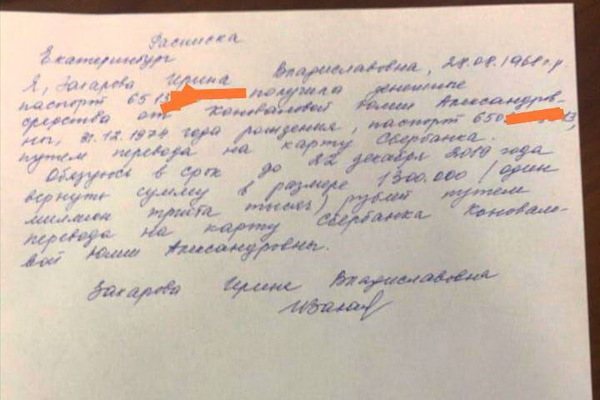 Расписка
Екатеринбург
Я, Захарова Ирина Владиславовна, 28.08.1968г.р.
паспорт 6513 получила денежные
средства от Коноваловой Юлии Александров-
ны, 31.12.1974 года рождения, паспорт 650
путем перевода на карту Сбербанка.
Обязуюсь в срок до 22 декабря 2019 года
вернуть сумму в размере 1300.000 /один
миллион триста тысяч/ рублей путем
перевода на карту Сбербанка Коновало-
вой Юлии Александровны.
Захарова Ирина Владиславовна